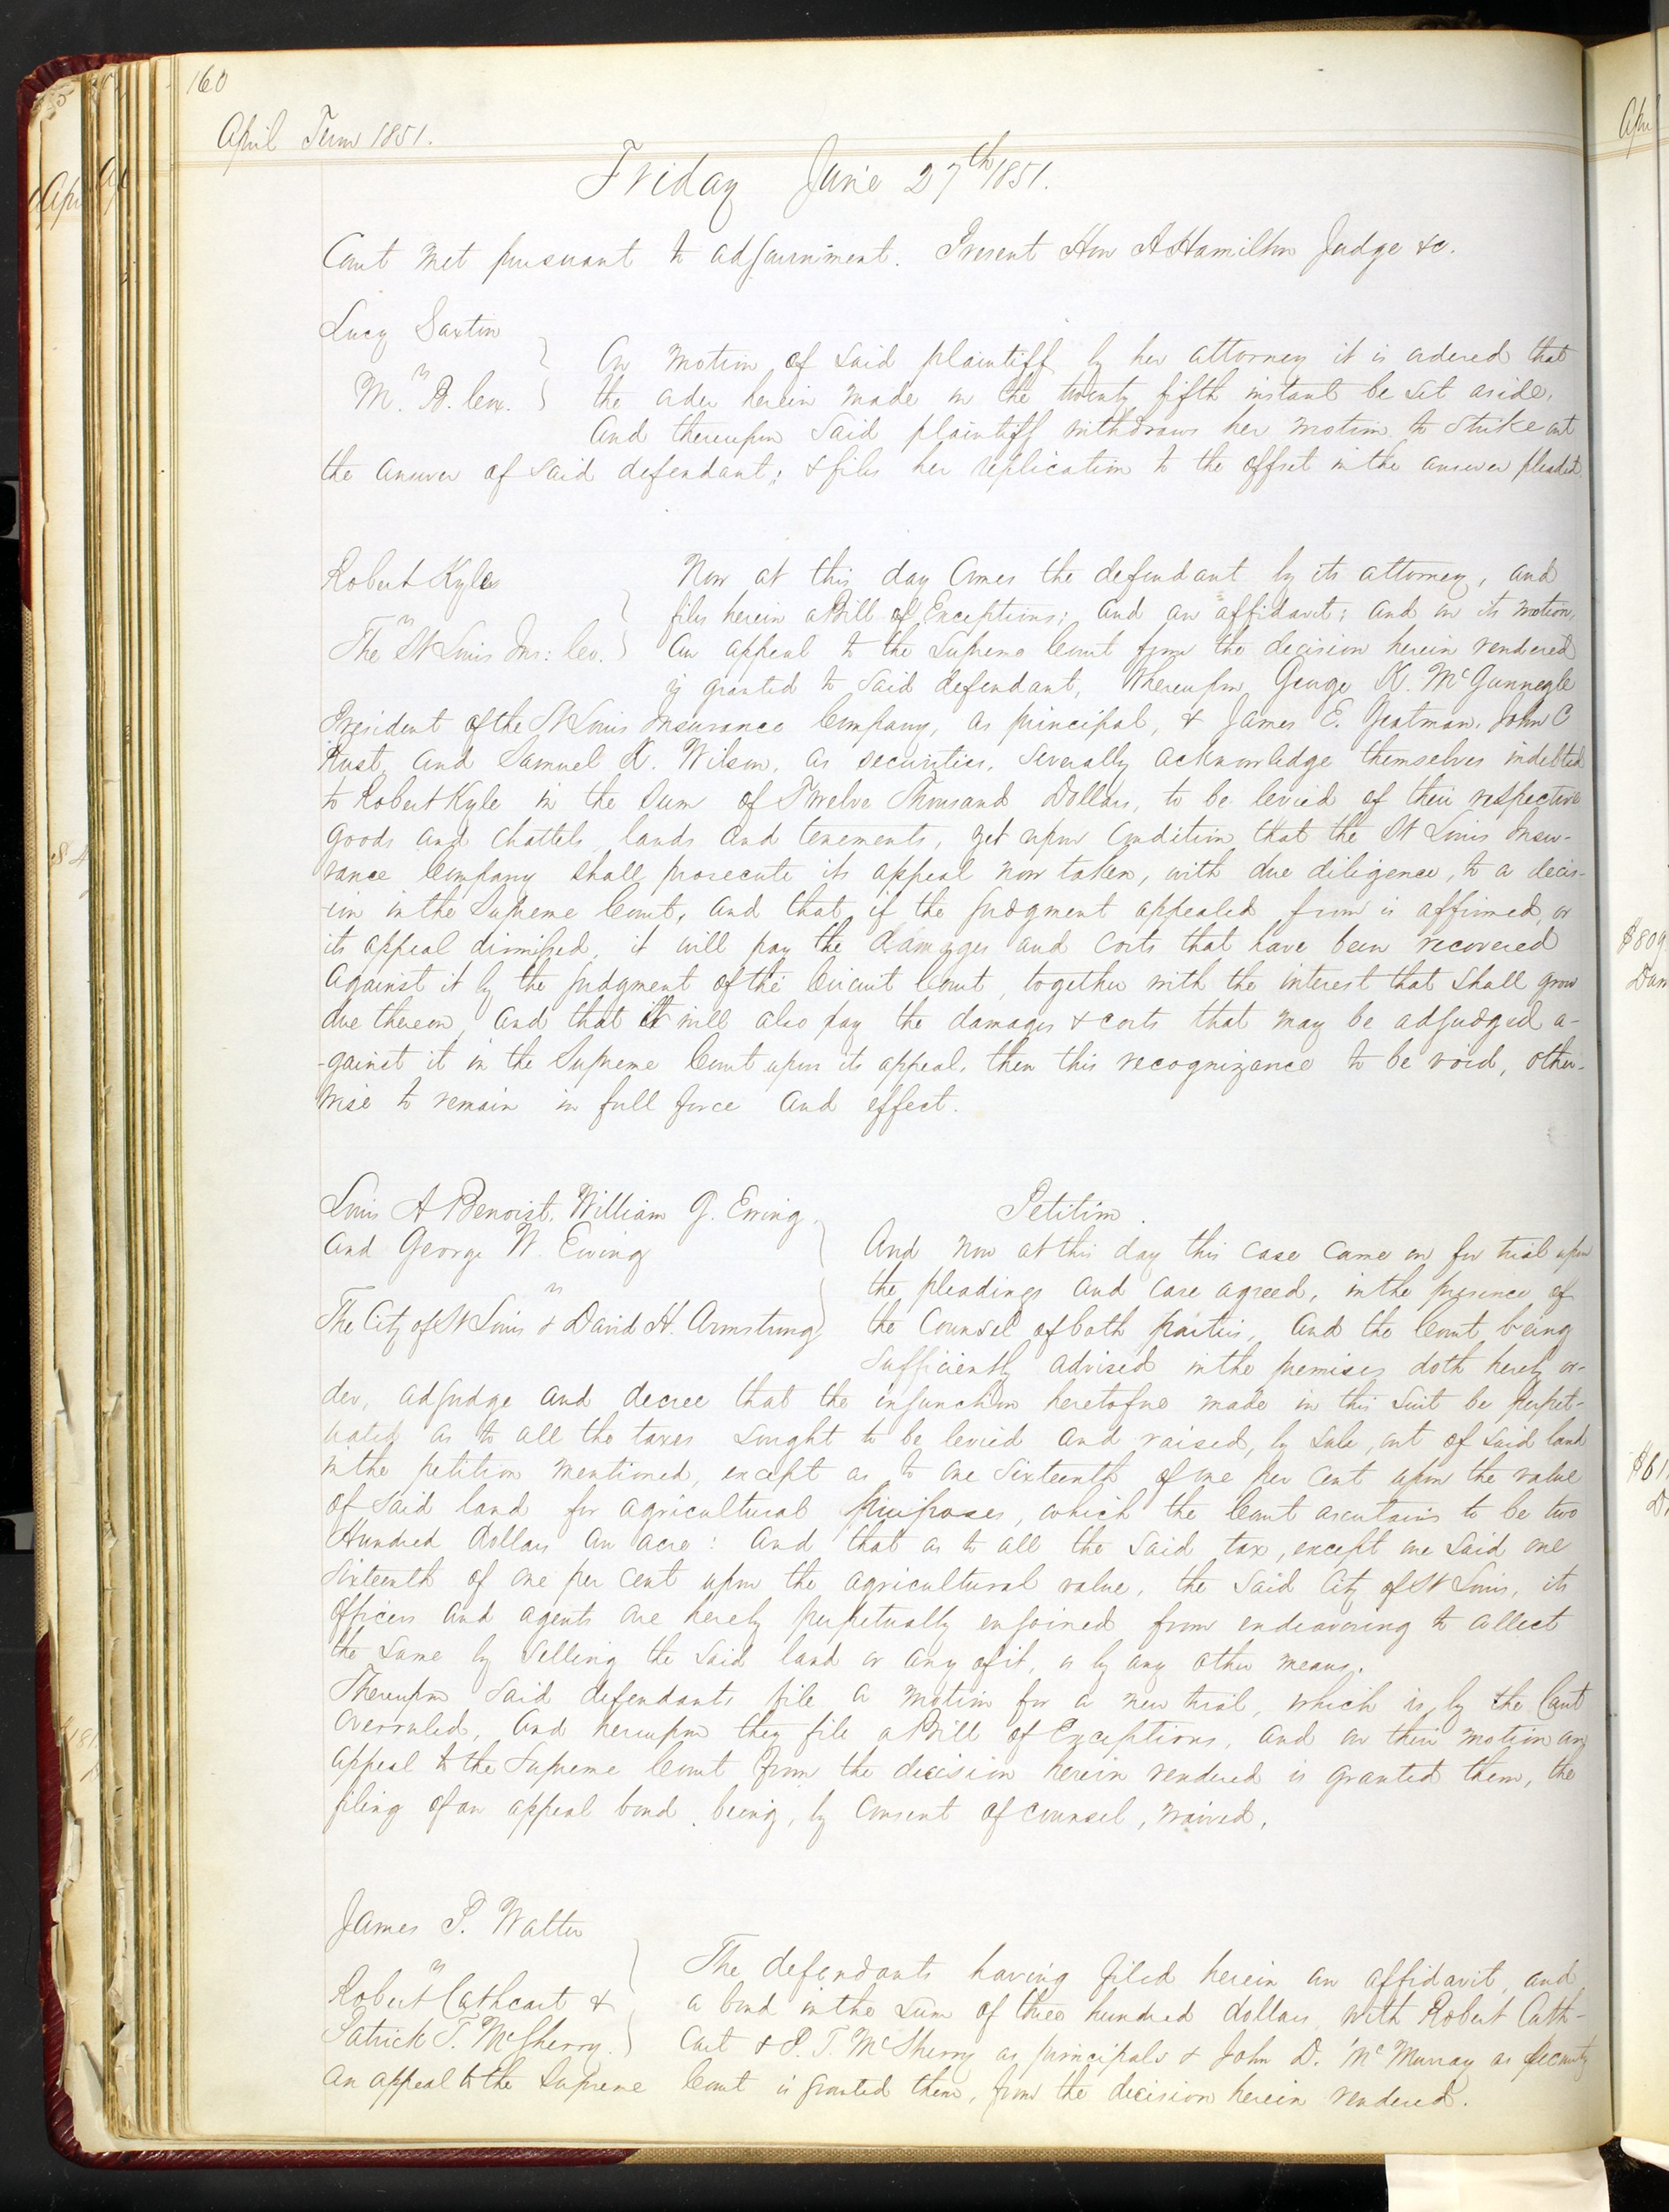 160
April Term 1851.
Friday June 27th 1851.
Court met pursuant to adjournment. Present Hon A Hamilton Judge &c.
Lucy Saxton
vs
M. D. Cox.
On motion of said plaintiff by her attorney it is ordered that
the order herein made on the twenty fifth instant be set aside,
And thereupon said plaintiff withdraws her motion to strike out
the answer of said defendant; & files her replication to the offset in the answer pleaded.
Robert Kyle
vs
The St Louis Ins: Co.
Now at this day comes the defendant by its attorney, and
files herein a Bill of Exceptions; and an affidavit; and on its motion,
An appeal to the Supreme Court from the decision herein rendered
is granted to said defendant, Whereupon George K. McGunnegle
President of the St Louis Insurance Company, as principal, & James E. Yeatman, John C
Rust, and Samuel K. Wilson, as securities, severally acknowledge themselves indebted
to Robert Kyle in the Sum of Twelve Thousand Dollars, to be levied of their respective
goods and chattels, lands and tenements, yet upon condition that the St Louis Insu-
rance Company shall prosecute its appeal now taken, with due diligence, to a decis-
-ion in the Supreme Court, and that if the judgment appealed from is affirmed, or
its appeal dismissed, it will pay the damages and costs that have been recovered
against it by the judgment of the Circuit Court, together with the interest that shall grow
due thereon, and that it will also pay the damages & costs that may be adjudged a-
-gainst it in the Supreme Court upon its appeal, then this recognizance to be void, other-
wise to remain in full force and effect.
Louis A Benoist, William G. Ewing,
and George W. Ewing
vs
The City of St Louis & David H. Armstrong
Petition.
And now at this day this case came on for trial upon
the pleadings and case agreed, in the presence of
the Counsel of both parties, and the Court being
sufficiently advised in the premises doth hereby or-
der, adjudge and decree that the injunction heretofore made in this suit be perpet-
uated as to all the taxes sought to be levied and raised, by sale, out of said land
in the petition mentioned, except as to one sixteenth of one per cent upon the value
of said land for agricultural purposes, which the Court ascertains to be two
Hundred dollars an acre: and that as to all the said tax, except one said one
sixteenth of one per cent upon the agricultural value, the said City of St Louis, its
officers and agents are hereby perpetually enjoined from endeavoring to collect
the same by selling the said land or any of it, or by any other means.
Thereupon said defendants file a motion for a new trial, which is, by the Court
overruled, and hereupon they file a Bill of Exceptions, and on their motion an
appeal to the Supreme Court from the decision herein rendered is granted them, the
filing of an appeal bond, being, by consent of counsel, waived.
James P. Walter
vs
Robert Cathcart &
Patrick T. McSherry.
The defendants having filed herein an affidavit, and
a bond in the sum of three hundred dollars, with Robert Cath-
cart & P. T. McSherry as principals & John D. McMurray as security
an appeal to the Supreme Court is granted them, from the decision herein rendered.